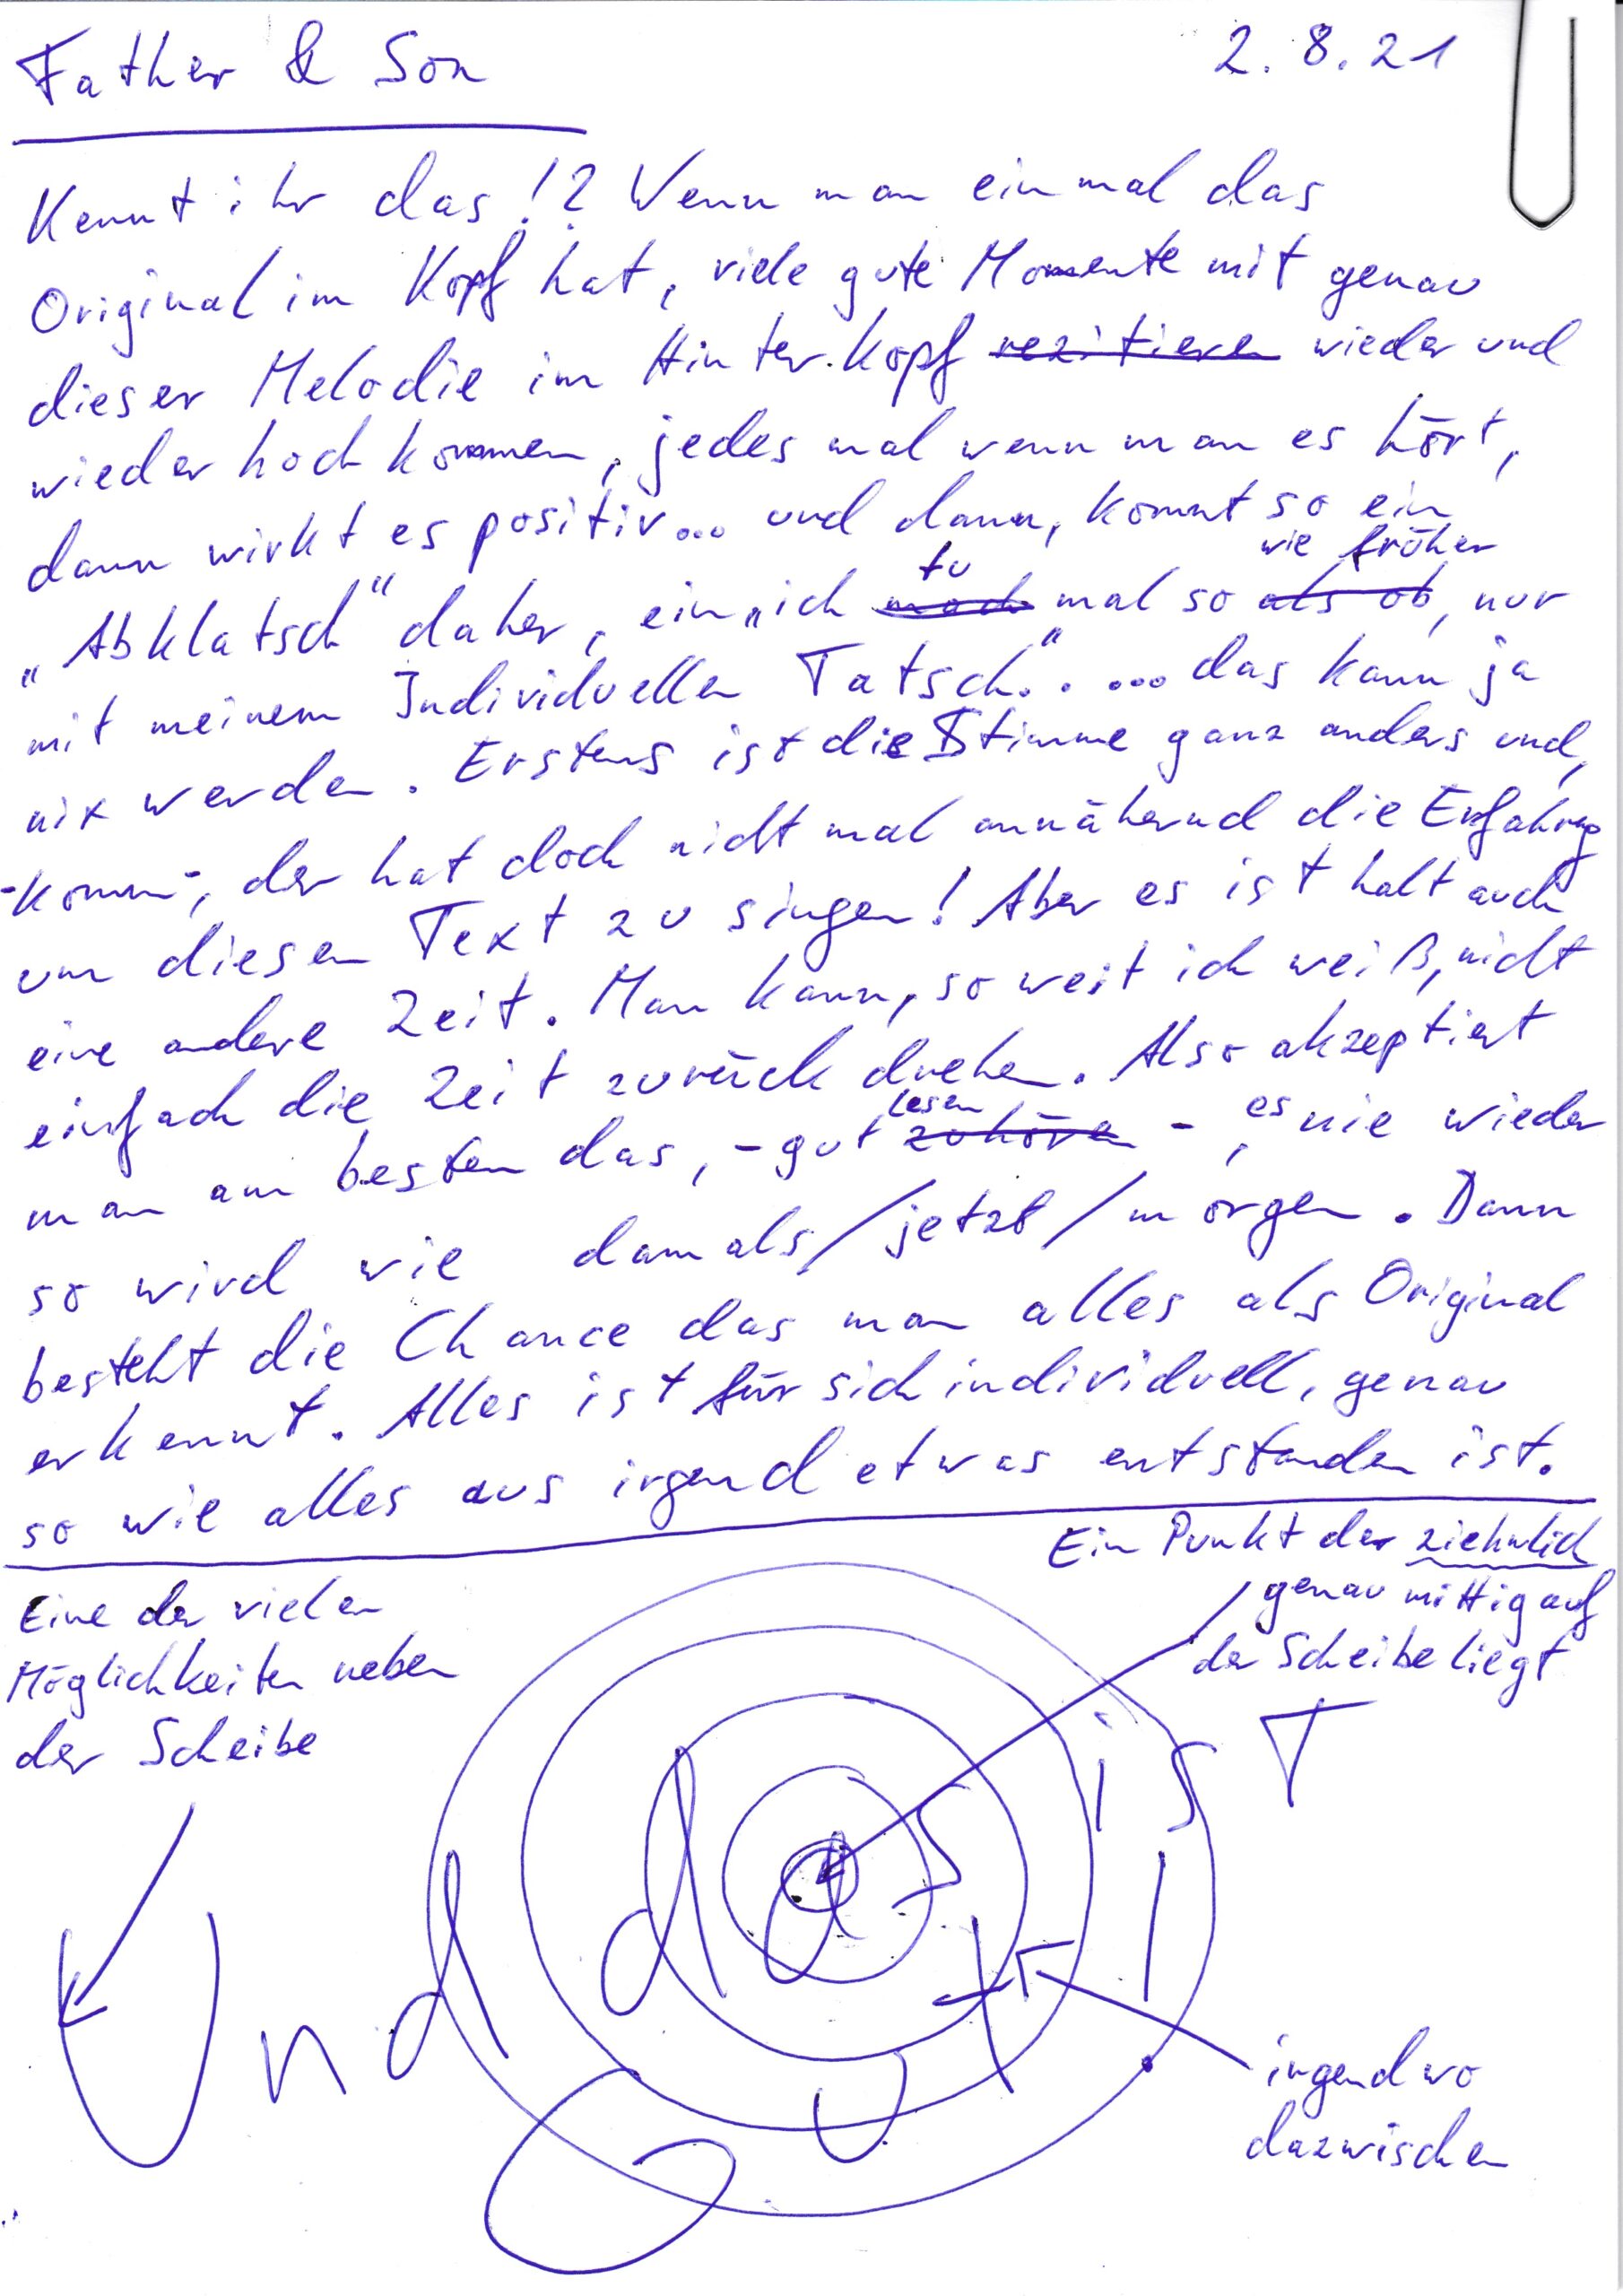 Father & Son
2.8.21
Kennt ihr das!? Wenn man einmal das
Original im Kopf hat, viele gute Momente mit genau
dieser Melodie im Hinter.kopf rezitieren wieder und
wieder hoch kommen, jedes mal wenn man es hört,
dann wirkt es positiv... und dann, kommt so ein
tu wie früher
„Abklatsch" daher, ein „ich mach mal so als ob, nur
mit meinem Individuellen Tatsch.". ... das kann ja
nix werden. Erstens ist die Stimme ganz anders und,
-komm-, der hat doch nicht mal annähernd die Erfahrung
um diesen Text zu singen! Aber es ist halt auch
eine andere Zeit. Man kann, so weit ich weiß, nicht
einfach die Zeit zurück drehen. Also akzeptiert
lesen es
man am besten das, - gut zuhören - , nie wieder
so wird wie damals/jetzt/morgen. Dann
besteht die Chance das man alles als Original
erkennt. Alles ist für sich individuell, genau
so wie alles aus irgend etwas entstanden ist.
Ein Punkt der ziehmlich
genau mittig auf
der Scheibe liegt
Eine der vielen
Möglichkeiten neben
der Scheibe
Und das isT
GUt!
irgendwo
dazwischen